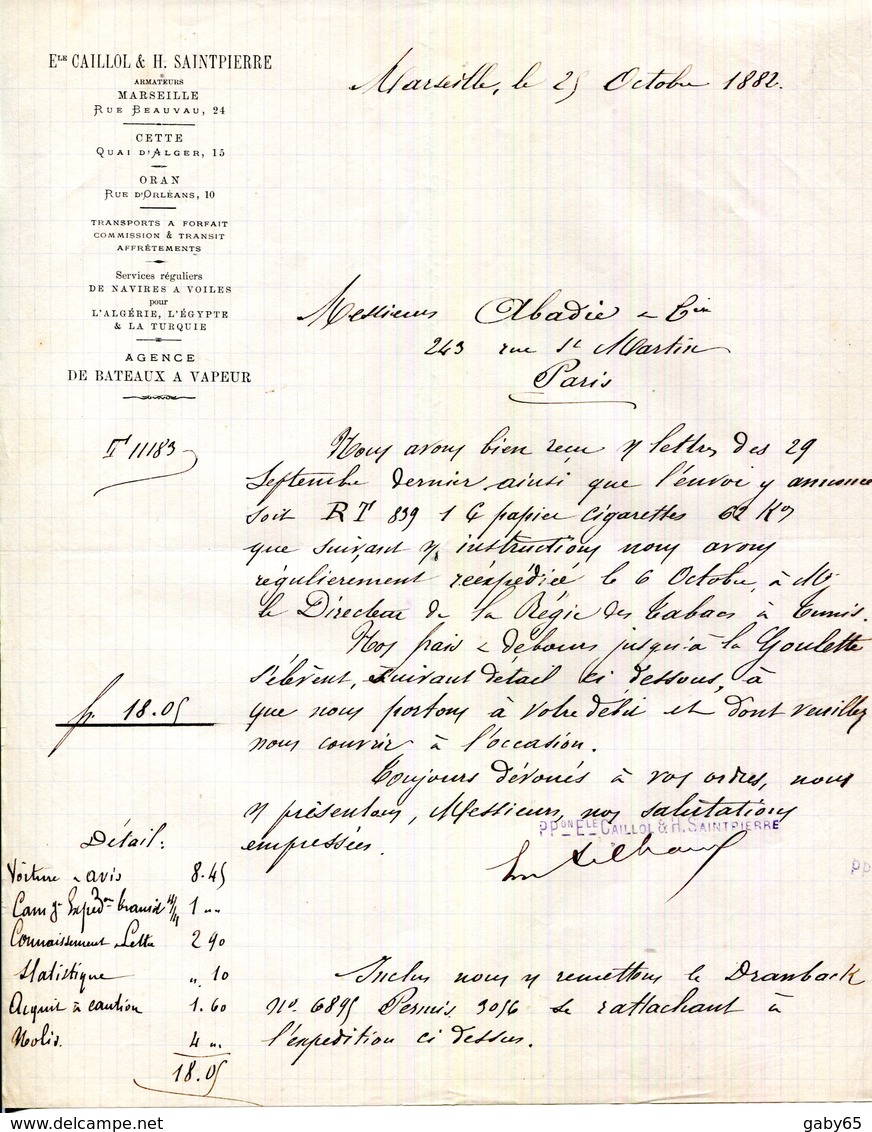 ELE CAILLOL & H. SAINTPIERRE
ARMATEURS
MARSEILLE
RUE BEAUVAU, 24
CETTE
QUAI D'ALGER, 15
ORAN
RUE D'ORLÉANS, 10
TRANSPORTS A FORFAIT
COMMISSION & TRANSIT
AFFRÉTEMENTS
Services réguliers
DE NAVIRES A VOILES
pour
L'ALGÉRIE, L'ÉGYPTE
& LA TURQUIE
AGENCE
DE BATEAUX A VAPEUR
Marseille, le 25 Octobre 1882.
Messieurs Abadie & Cie
243 rue St Martin
Paris
T 11183
Nous avons bien recu v/ lettres des 29
Septembre dernier ainsi que l'envoi y annoncé
soit RT 839 1 C papier cigarettes 62 Kos
que suivant v/ instructions nous avons
régulierement réexpédiée le 6 Octobre, à Mr
le Directeur de la Régie des Tabacs à Tunis.
Nos frais & débours jusqu'à la Goulette
s'élèvent, suivant détail ci dessous, à
fr. 18.05
que nous portons à votre débit et dont veuillez
nous couvrir à l'occasion.
Toujours dévoués à vos ordres, nous
v/ présentons, Messieurs, nos salutations
empressées.
PPON ELE CAILLOL & H. SAINTPIERRE
Détail:
Voiture & avis 8.45
Expedon transit 1 ""
Connaissement Lettre 2 90
Statistique " 10
Acquit à caution 1.60
Nolis. 4 "
18.05
Inclus nous v/ remettons le Drawback
No. 6895 Permis 3056 se rattachant à
l'expedition ci dessus.
PP
gaby65